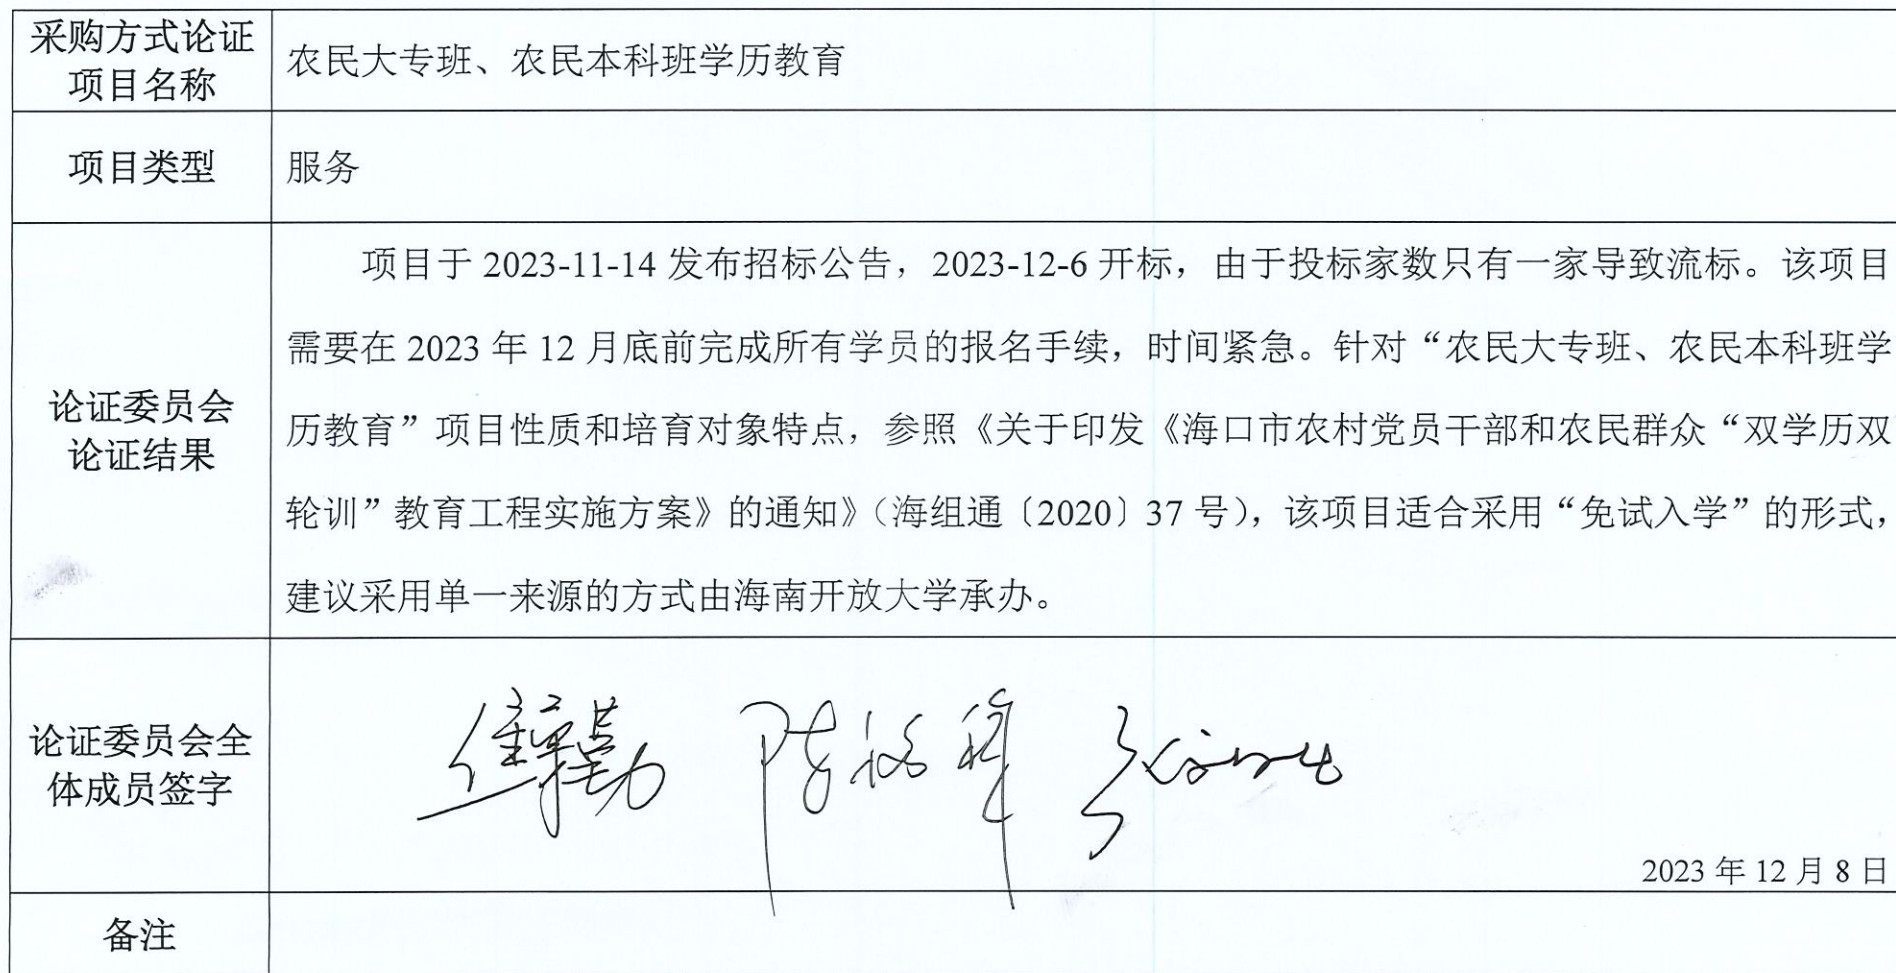 采购方式论证
项目名称
农民大专班、农民本科班学历教育
项目类型
服务
论证委员会
论证结果
项目于 2023-11-14 发布招标公告，2023-12-6 开标，由于投标家数只有一家导致流标。该项目
需要在 2023 年 12 月底前完成所有学员的报名手续，时间紧急。针对“农民大专班、农民本科班学
历教育”项目性质和培育对象特点，参照《关于印发《海口市农村党员干部和农民群众“双学历双
轮训”教育工程实施方案》的通知》（海组通〔2020〕37 号），该项目适合采用“免试入学”的形式，
建议采用单一来源的方式由海南开放大学承办。
论证委员会全
体成员签字
2023 年 12 月 8 日
备注